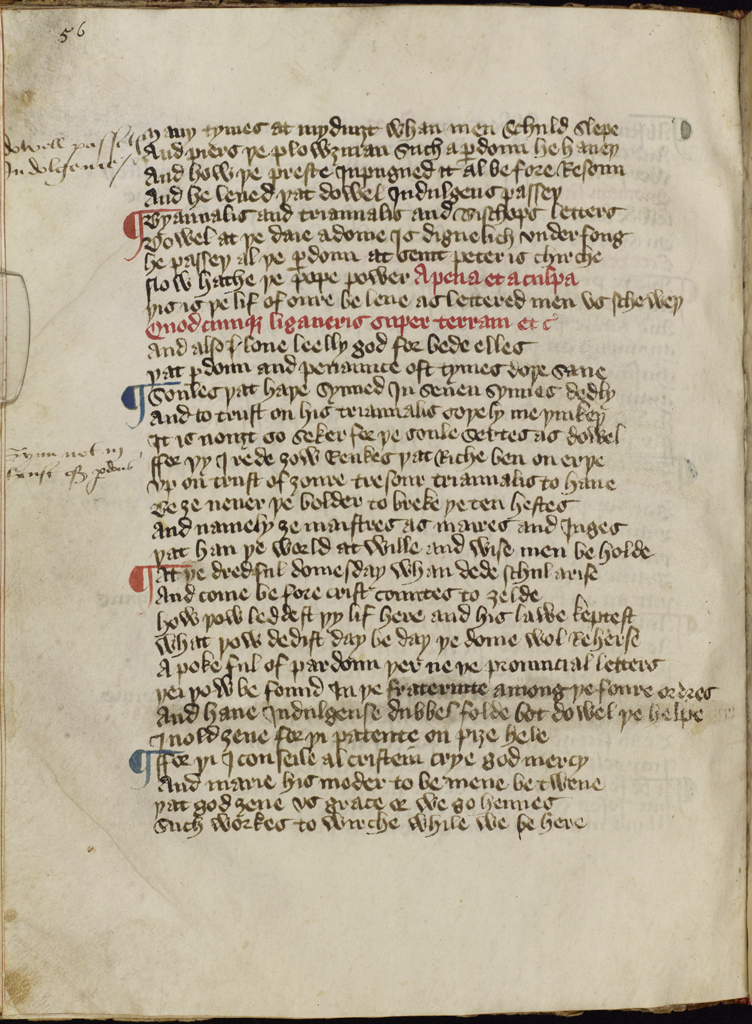 56
dowell passeth
Indolgences
Many tymes at mydnizt whan men Schuld slepe
And piers þe plowzman Such a pardoun he haueþ
And how þe preste Inpugned it al be fore Resoun
And he leued þat dowel Indulgens passeþ
Byannalis and triannalis and Bischops letters
Dowel at þe daie a dome Is dignelich vnderfong
he passeþ al þe pardoun at seint peter is chirche
Now hathe þe pope power A pena et a culpa
þis is þe lif of oure be leue as lettered men vs scheweþ
Quodcumque ligaueris super terram et c
And also I loue leelly god for bede elles
þat pardoun and penaunce oft tymes doþe saue
Soules þat haþe Synned In seuen synnes dedly
And to trust on his triannalis soþely me þinkeþ
It is nouzt so seker for þe soule Certes as dowel
ffor þy I rede zow Renkes þat Riche ben on erþe
vp on trust of zoure tresour triannalis to haue
Be ze neuer þe bolder to breke þe ten hestes
And namely ze maistres as maires and Juges
þat han þe world at wille and wise men be holde
At þe dredful domesday whan dede schul arise
And come be fore crist countes to zelde
how þow leddest þy lif here and his lawe keptest
What þow dedist day be day þe dome wol Reherse
A poke ful of pardoun þer ne þe prouincial letters
þei þow be found In þe fraternite among þe foure ordres
And haue Indulgense dubbel folde bot dowel þe helpe
I nold zeue for þi patente on pize hele
ffor þi I conseile al cristein crye god mercy
And marie his moder to be mene be twene
þat god zeue vs grace er we go hennes
Such workes to wirche while we be here
Synn not in
trust of pardons